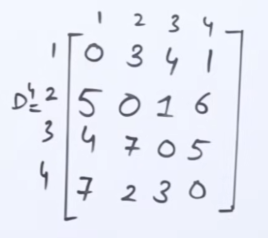 1 2 3 4
1 0 3 4 1
D⁴= 2 5 0 1 6
3 4 7 0 5
4 7 2 3 0